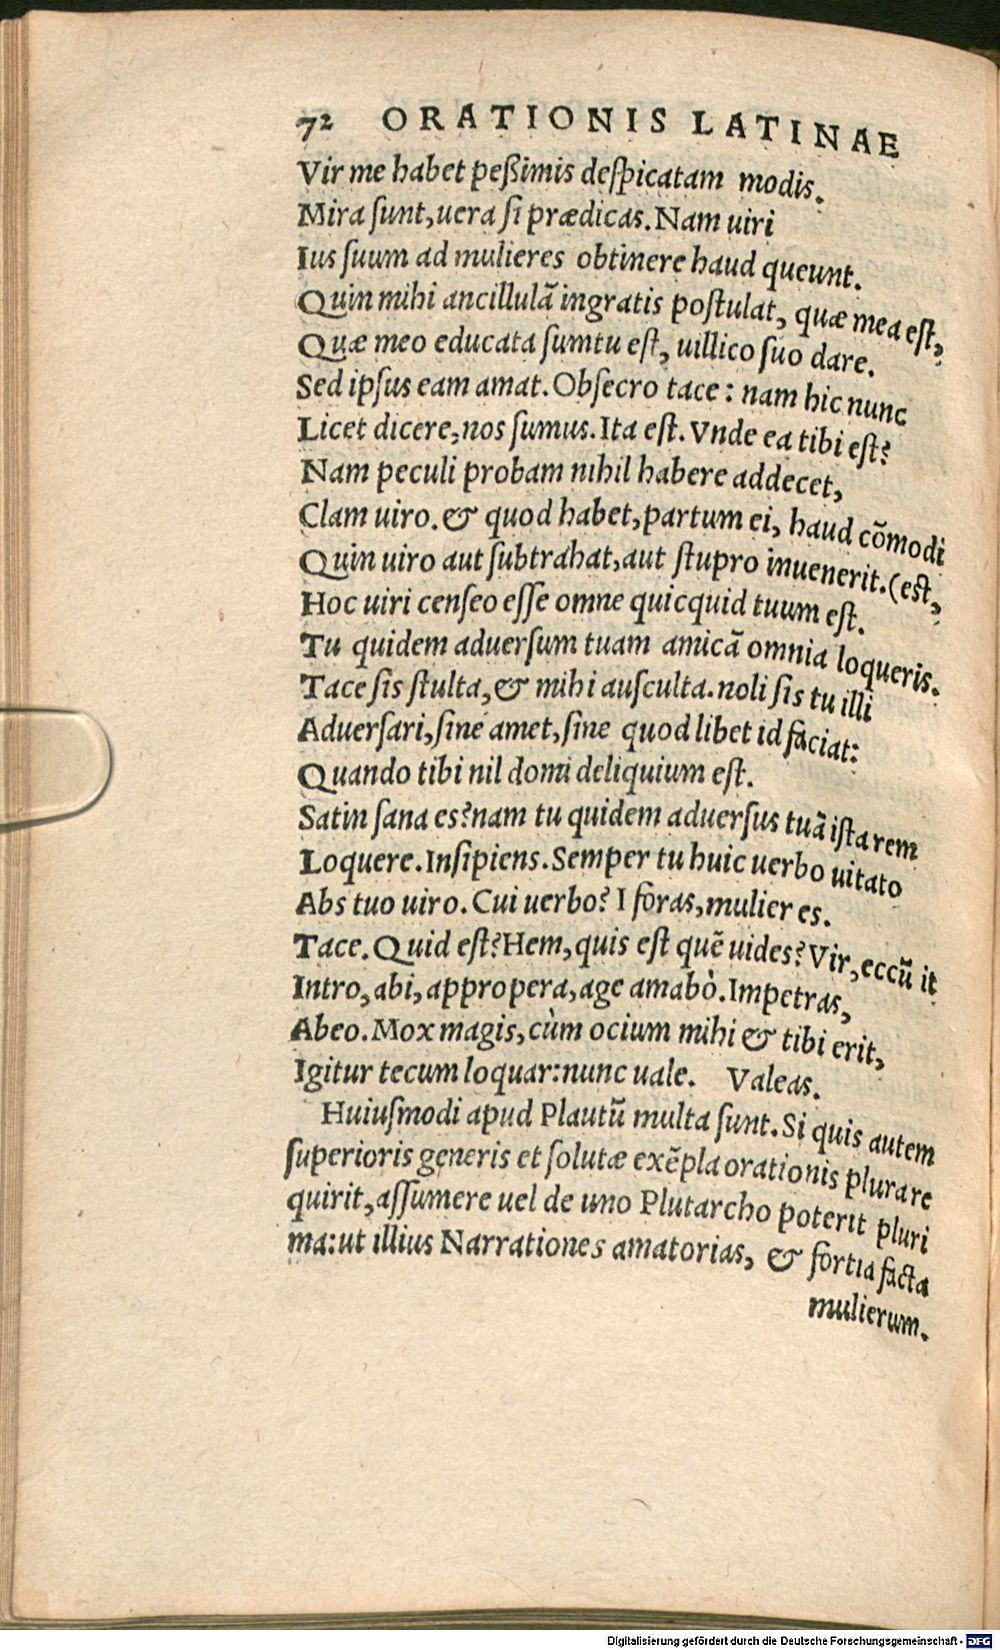 72 ORATIONIS LATINAE
Vir me habet peßimis deſpicatam modis.
Mira ſunt,uera ſi prædicas.Nam uiri
Ius ſuum ad mulieres obtinere haud queunt.
Quin mihi ancillulã ingratis poſtulat, quæ mea eſt,
Quæ meo educata ſumtu eſt, uillico ſuo dare.
Sed ipſus eam amat.Obſecro tace: nam hic nunc
Licet dicere,nos ſumus.Ita eſt.Vnde ea tibi eſt?
Nam peculi probam nihil habere addecet,
Clam uiro.& quod habet,partum ei, haud cõmodi
Quin uiro aut ſubtrahat,aut ſtupro inuenerit.(eſt,
Hoc uiri cenſeo eſſe omne quicquid tuum eſt.
Tu quidem aduerſum tuam amicã omnia loqueris.
Tace ſis ſtulta,& mihi auſculta.noli ſis tu illi
Aduerſari,ſine amet,ſine quod libet id faciat:
Quando tibi nil domi deliquium eſt.
Satin ſana es?nam tu quidem aduerſus tuã iſta rem
Loquere.Inſipiens.Semper tu huic uerbo uitato
Abs tuo uiro.Cui uerbo? I foras,mulier es.
Tace.Quid eſt?Hem,quis eſt quẽ uides?Vir,eccũ it
Intro,abi,appropera,age amabò.Impetras,
Abeo.Mox magis,cùm ocium mihi & tibi erit,
Igitur tecum loquar:nunc uale. Valeas.
Huiuſmodi apud Plautũ multa ſunt.Si quis autem
ſuperioris generis et ſolutæ exẽpla orationis plura re
quirit,aſſumere uel de uno Plutarcho poterit pluri
ma:ut illius Narrationes amatorias, & fortia facta
mulierum.
Digitalisierung gefördert durch die Deutsche Forschungsgemeinschaft - DFG